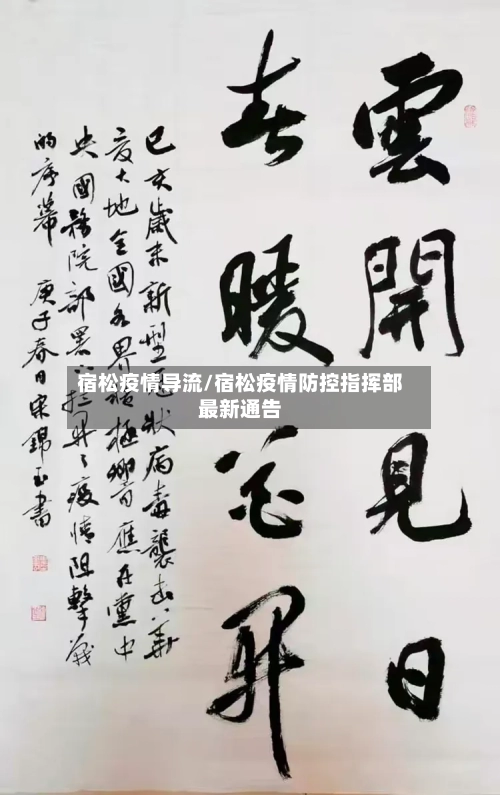 雲開見日
春暖花开
己亥歲末新型冠狀病毒襲击華
夏大地全國各界積極響應在黨中
央國務院部署下拉开了疫情阻擊戰
的序幕 庚子春日宋錦玉書
宿松疫情导流/宿松疫情防控指挥部
最新通告